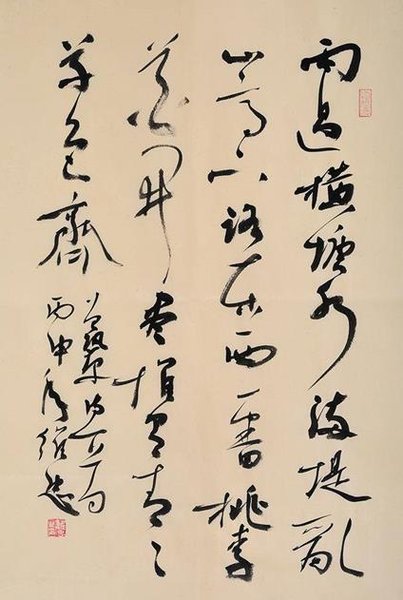 雨過橫塘水滿堤亂
山高下路東西一番桃李
花開盡惟有青々
草色齊
曾鞏詩
丙申